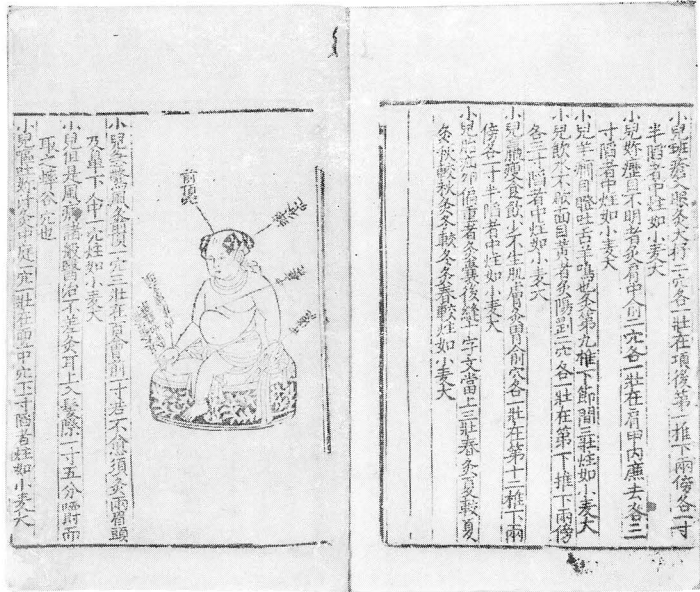 小兒斑瘡入眼灸大杼二穴各一壯在項後第一推下兩傍各一寸
半陷者中炷如小麥大
小兒妳癧目不明者灸肩中俞二穴各一壯在肩甲內廉去脊三
寸陷者中炷如小麥大
小兒羊癇目瞪吐舌羊鳴也灸第九椎下節間三壯炷如小麥大
小兒飲水不歇面目黃者灸陽剛二穴各一壯在第下推下兩傍
各三寸陷者中炷如小麥大
小兒羸瘦食飲少不生肌膚灸胃俞穴各一壯在第十二椎下兩
傍各一寸半陷者中炷如小麥大
小兒卵偏重者灸囊後縫十字文當上三壯春灸夏較夏
灸秋較秋灸冬較冬灸春較炷如小麥大
前頂
小兒急驚風灸前頂一穴三壯在百會前一寸若不愈須灸兩眉頭
及鼻下人中一穴炷如小麥大
小兒但是風病諸般醫治不差灸耳上入髮際一寸五分嚼而
取之率谷穴也
小兒嘔吐妳汁灸中庭一穴一壯在膻中穴下寸陷者炷如小麥大